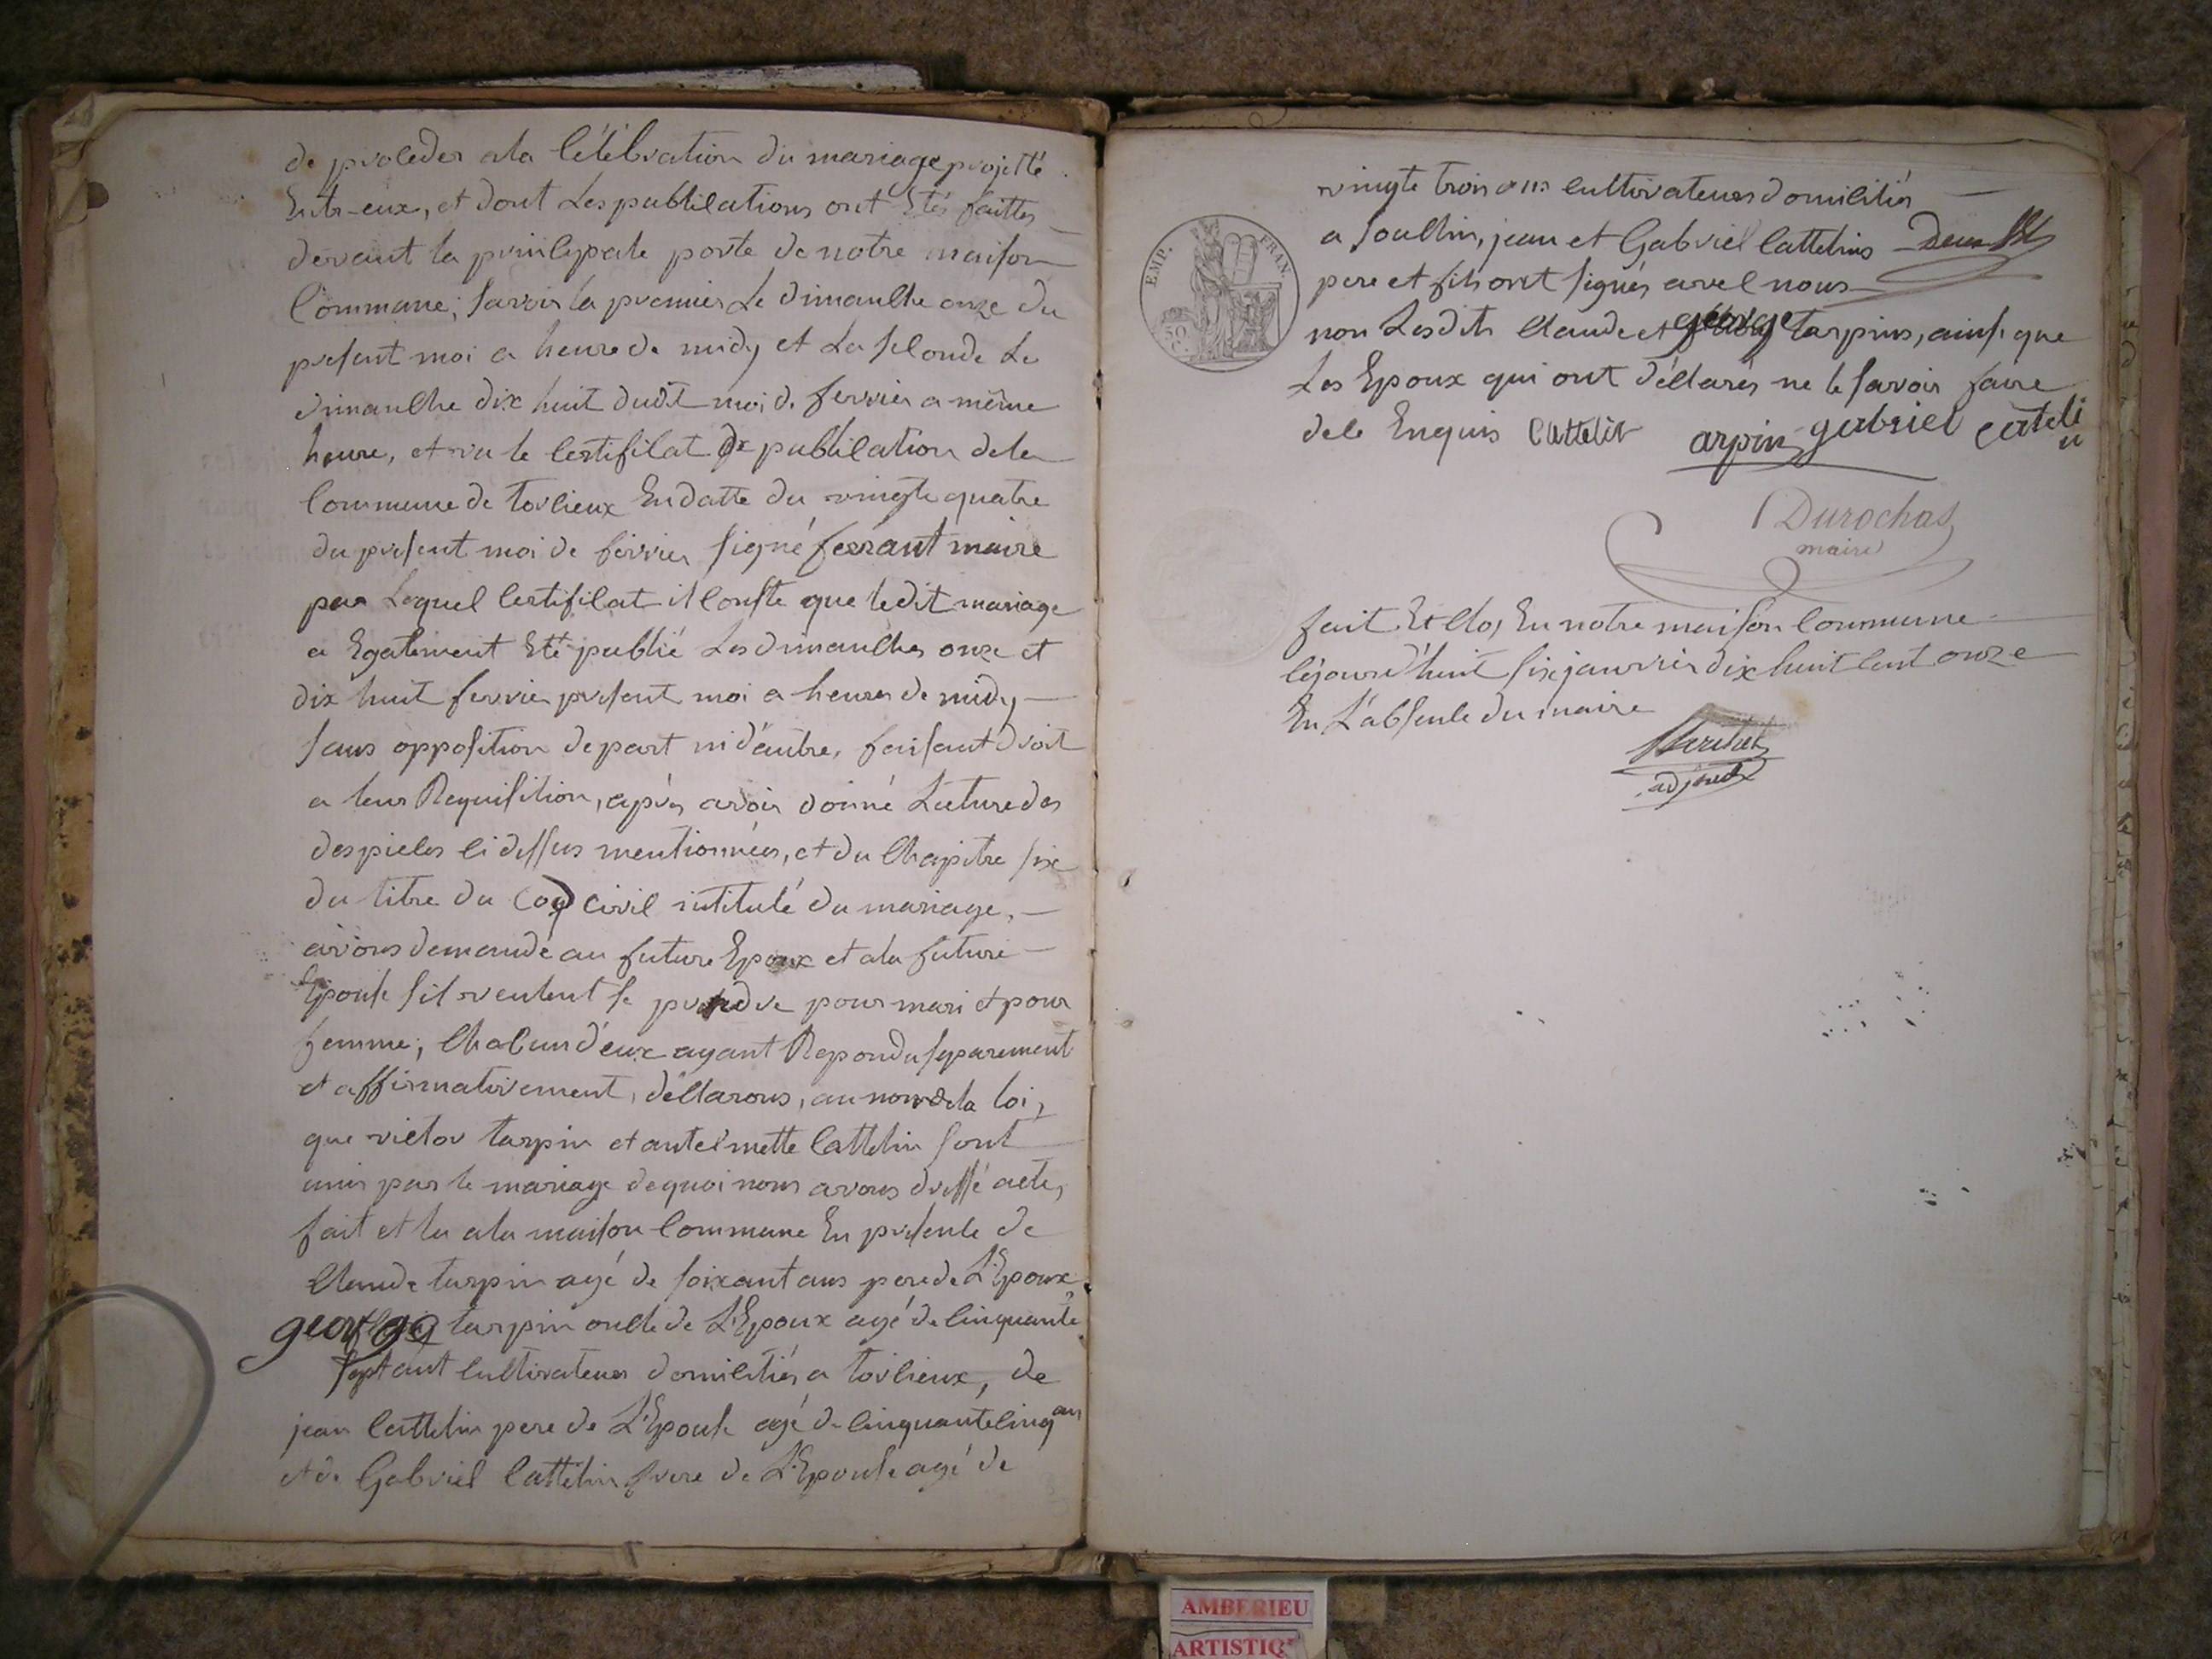 de proceder ala Célébration du mariage projetté
Entr-eux, et dont Les publications ont Etés faittes
devant la principale porte de notre maison
Commune; Savoir la premier Le dimanche onze du
present moi a heure de midy et La seconde Le
dimanche dix huit dudit moi de fevrier a même
heure, et vu le Certificat de publication dela
Commune de torcieux En datte du vingte quatre
du present moi de fevrier signé ferrant maire
par Lequel Certificat il Conste que ledit mariage
a Egalement Eté publié Les dimanches onze et
dix huit fevrie present moi a heures de midy
sans opposition de part ni d'autre, faisant droit
a leur Requisition, après avoir donné Lecture des
des pieces ci dessus mentionnées, et du Chapitre six
du titre du Cod Civil intitulé du mariage,
avons demandé au future Epoux et ala future
Epouse s'il veulent se prendre pour mari et pour
femme, Chacun d'eux ayant Repondu separement
et affirmativement, déclarons, au nom dela loi,
que victor tarpin et antelmette Cattelin sont
unis par le mariage dequoi nous avons dressé acte,
fait et lu ala maison Commune En presence de
Claude tarpin agé de soixant ans pere de L'Epoux,
george tarpin oncle de L'Epoux agé de Cinquante
sept ant Cultivateurs domiciliés a torcieux, de
jean Cattelin pere de L'Epouse agé de Cinquante Cinq ans
et de Gabriel Cattelin frere de L'Epouse agé de
vingte trois ans Cultivateurs domiciliés
a Soucllin, jean et Gabriel Cattelins
pere et fils ont signés avec nous
non Lesdits Claude et george tarpins, ainsi que
Les Epoux qui ont déclarés ne le savoir faire
dece Enquis Cattelin arpin gabriel cateli
n
Durochat
maire
EMP. FRAN.
50 C.
fait Et Clos En notre maison Commune
Cejourd'huit six janvier dix huit Cent onze
En L'absence du maire
adjoint
AMBERIEU
ARTISTIQ